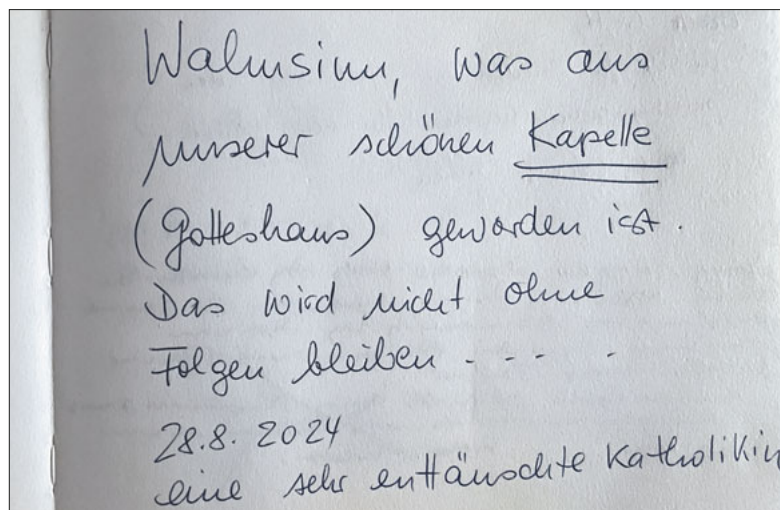 Wahnsinn, was aus
unserer schönen Kapelle
(Gotteshaus) geworden ist.
Das wird nicht ohne
Folgen bleiben - - - .
28.8. 2024
eine sehr enttäuschte Katholikin